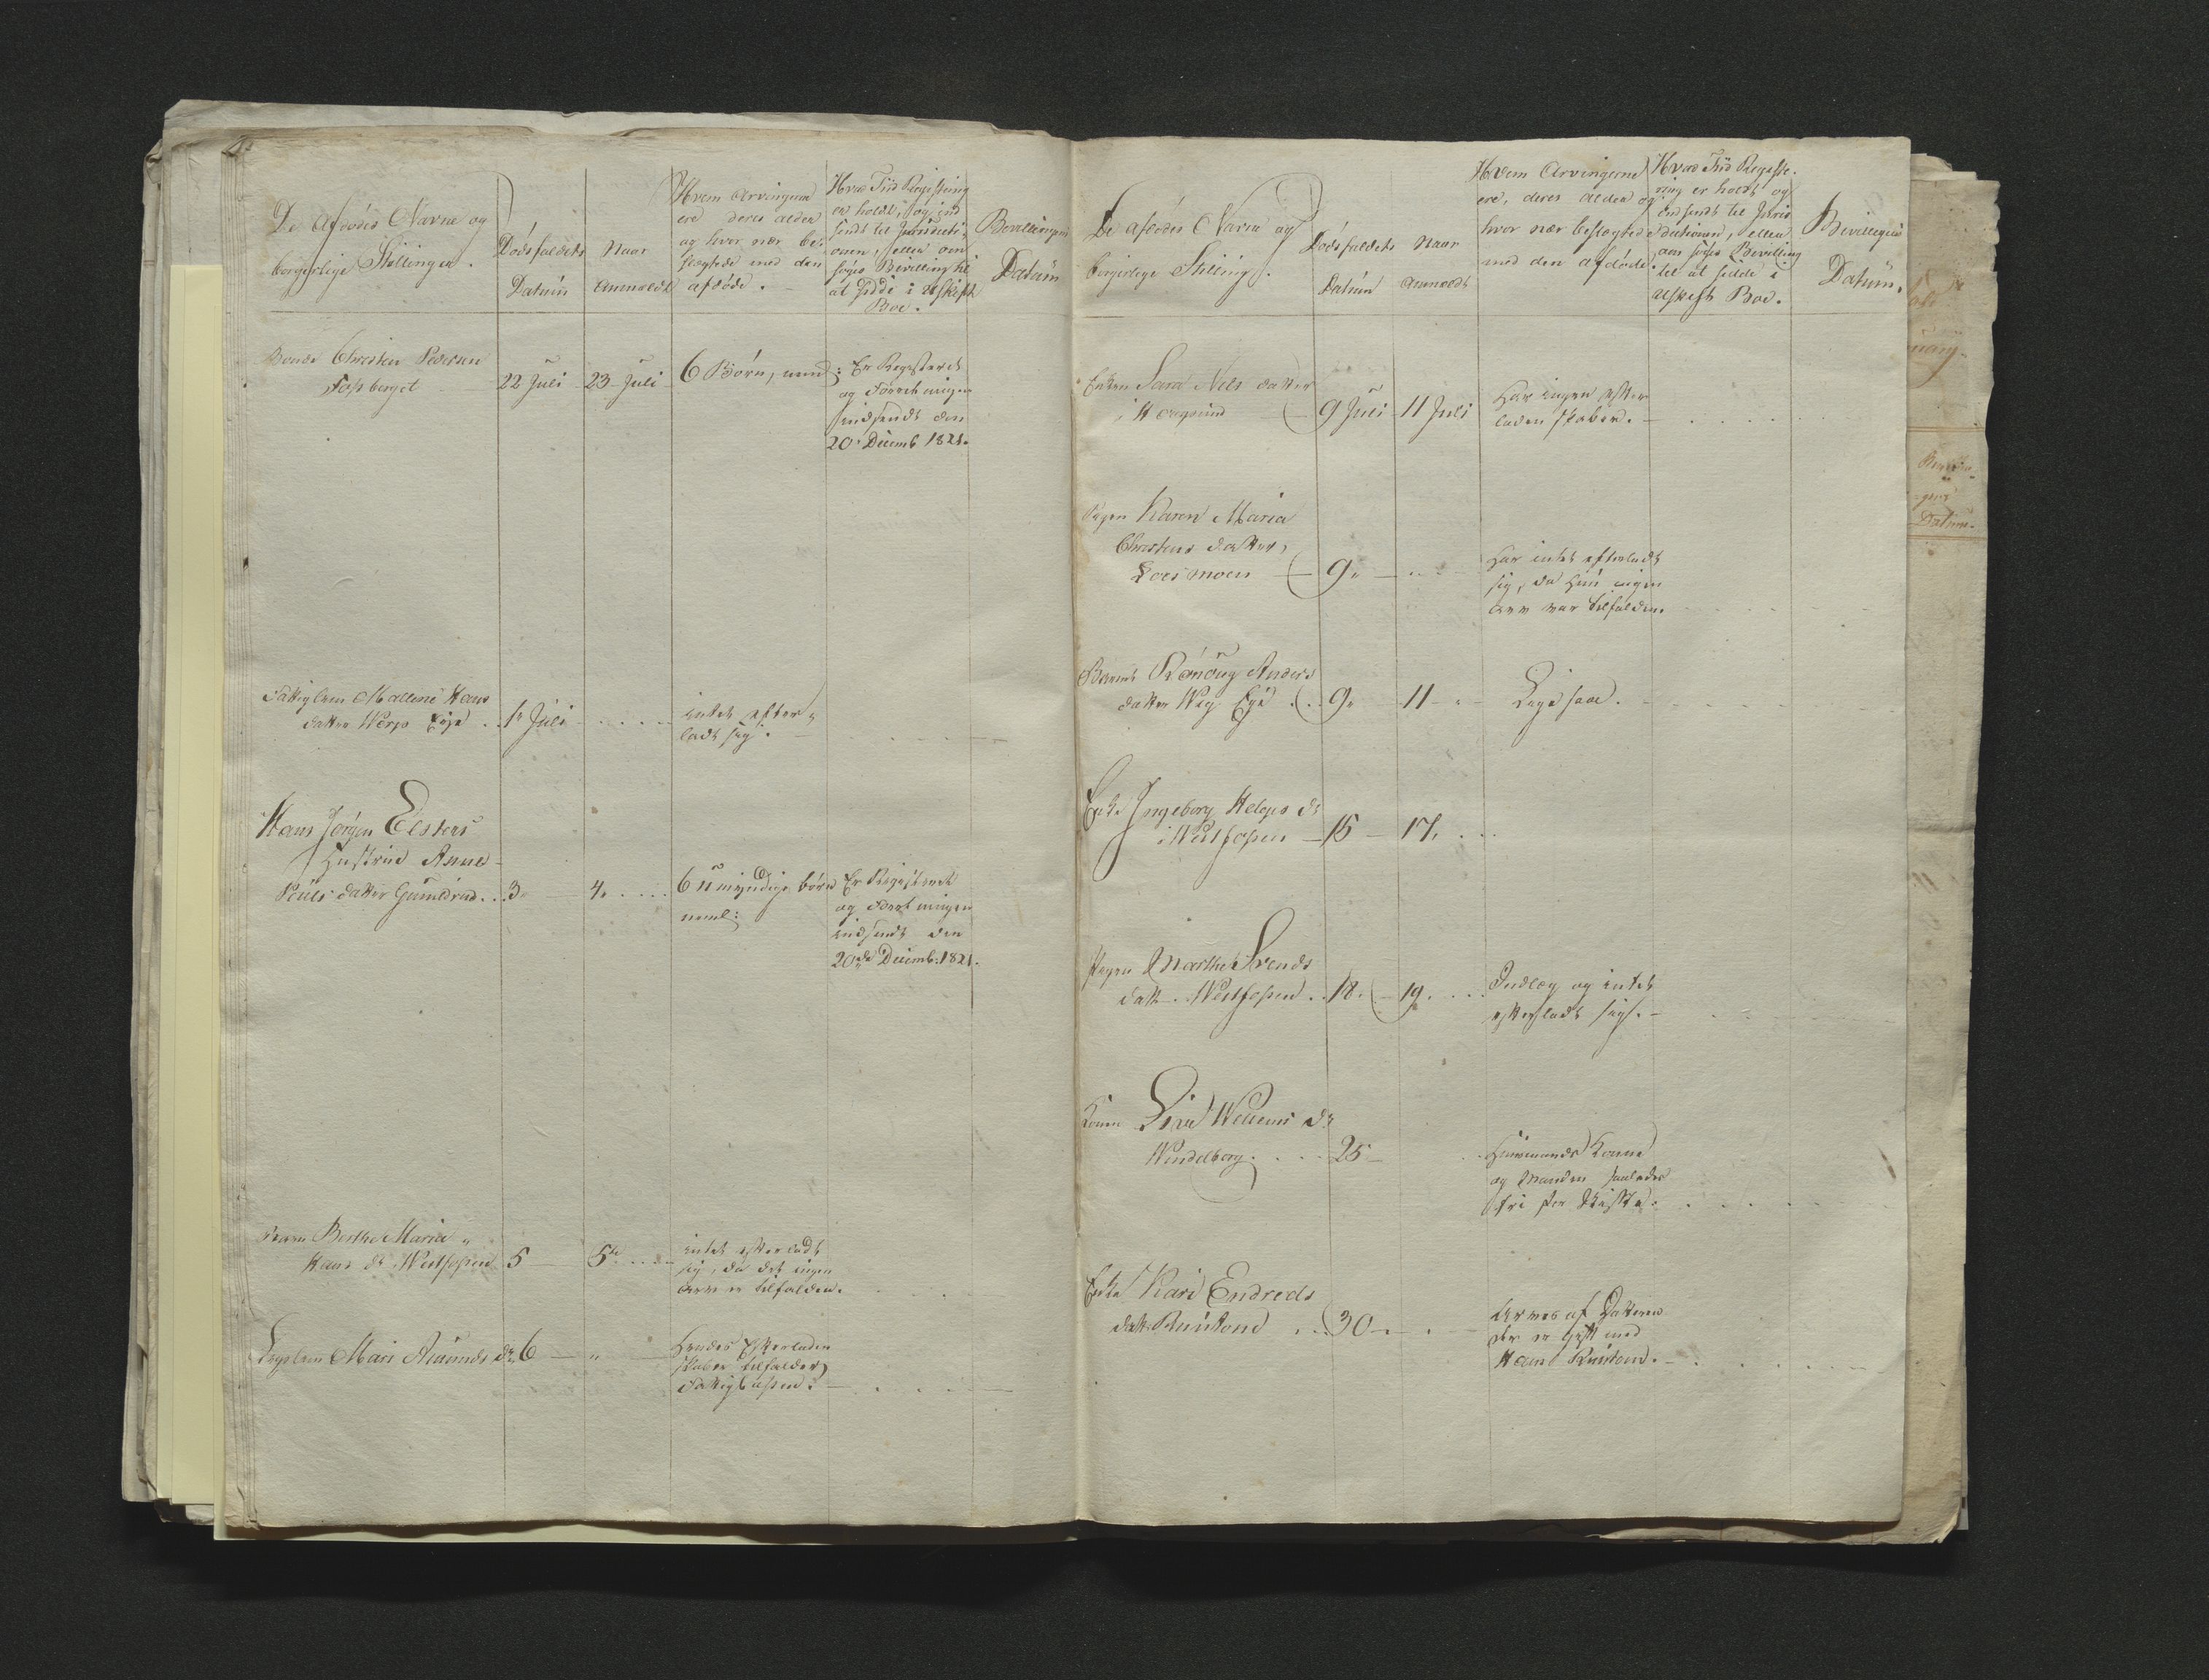 De Afdødes Navne og
borgerlige Stillinger.
Dödsfaldets
Datum
Naar
Anmældt
Hvem Arvingerne
ere deres alder
og hvor nær be-
slægtede med den
afdøde.
Hvad Tiid Registring
er holdt, og ind
sendt til Jurisdicti-
onen, eller om
søges Bevilling til
at sidde i uskiftet
Boe.
Bevillingens
Datum
Bonde Christen Pedersen
Fossberget
22 Juli
23 Juli
6 Børn, neml:
Er Registeret
og Forretningen
indsendt den
20 Decemb 1821.
Fattiglem Mallene Hans
datter Worps Eye
1e Juli
intet efter-
ladt sig.
Hans Jørgen Elsters
Hustrue Anne
Pouls datter Gunnerud
3
4.
6 umyndige børn
neml:
Er Registeret
og Forretningen
indsendt den
20de Decemb. 1821.
Barn Berthe Maria
Hans dr Westfossen
5
5te
intet efterladt
sig, da det ingen
Arv er tilfalden.
Lægslem Mari Amunds dr
6
"
Hendes Efterladen
skaber tilfalder
Fattigkassen.
De afdødes Navne og
borgerlige Stilling.
Dødsfaldets
Datum
Naar
Anmeldt
Hvem Arvingerne
ere, deres Alder og
hvor nær beslægtede
med den afdøde.
Hvad Tiid Registe-
ring er holdt og
indsendt til Juris
dictionen, eller
om søges Bevilling
til at sidde i
uskift Boe.
Bevillingens
Datum.
Enken Sara Nels datter
i Haugsund
9 Juli
11 Juli
Har ingen efter
ladenskaber.
Pigen Karen Maria
Christens datter,
Loesmoen
9.
Har intet efterladt
sig, da hun ingen
Arv var tilfalden.
Barnet Rønoug Anders
datter Weg Eye
9.
11
Ligesaa.
Enke Ingeborg Helges dr
i Westfossen
15
17.
Pigen Marthe Svends
datt. Westfossen
18.
19.
Indlæg og intet
efterladt sig.
Konen Live Wellums dr
Windelborg
25
Huusmands Kone
og Manden saaledes
fri for Skifte.
Enke Kari Endreds
datt. Ruustand
30
Arves af Datteren
der er gift med
Hans Ruustand.